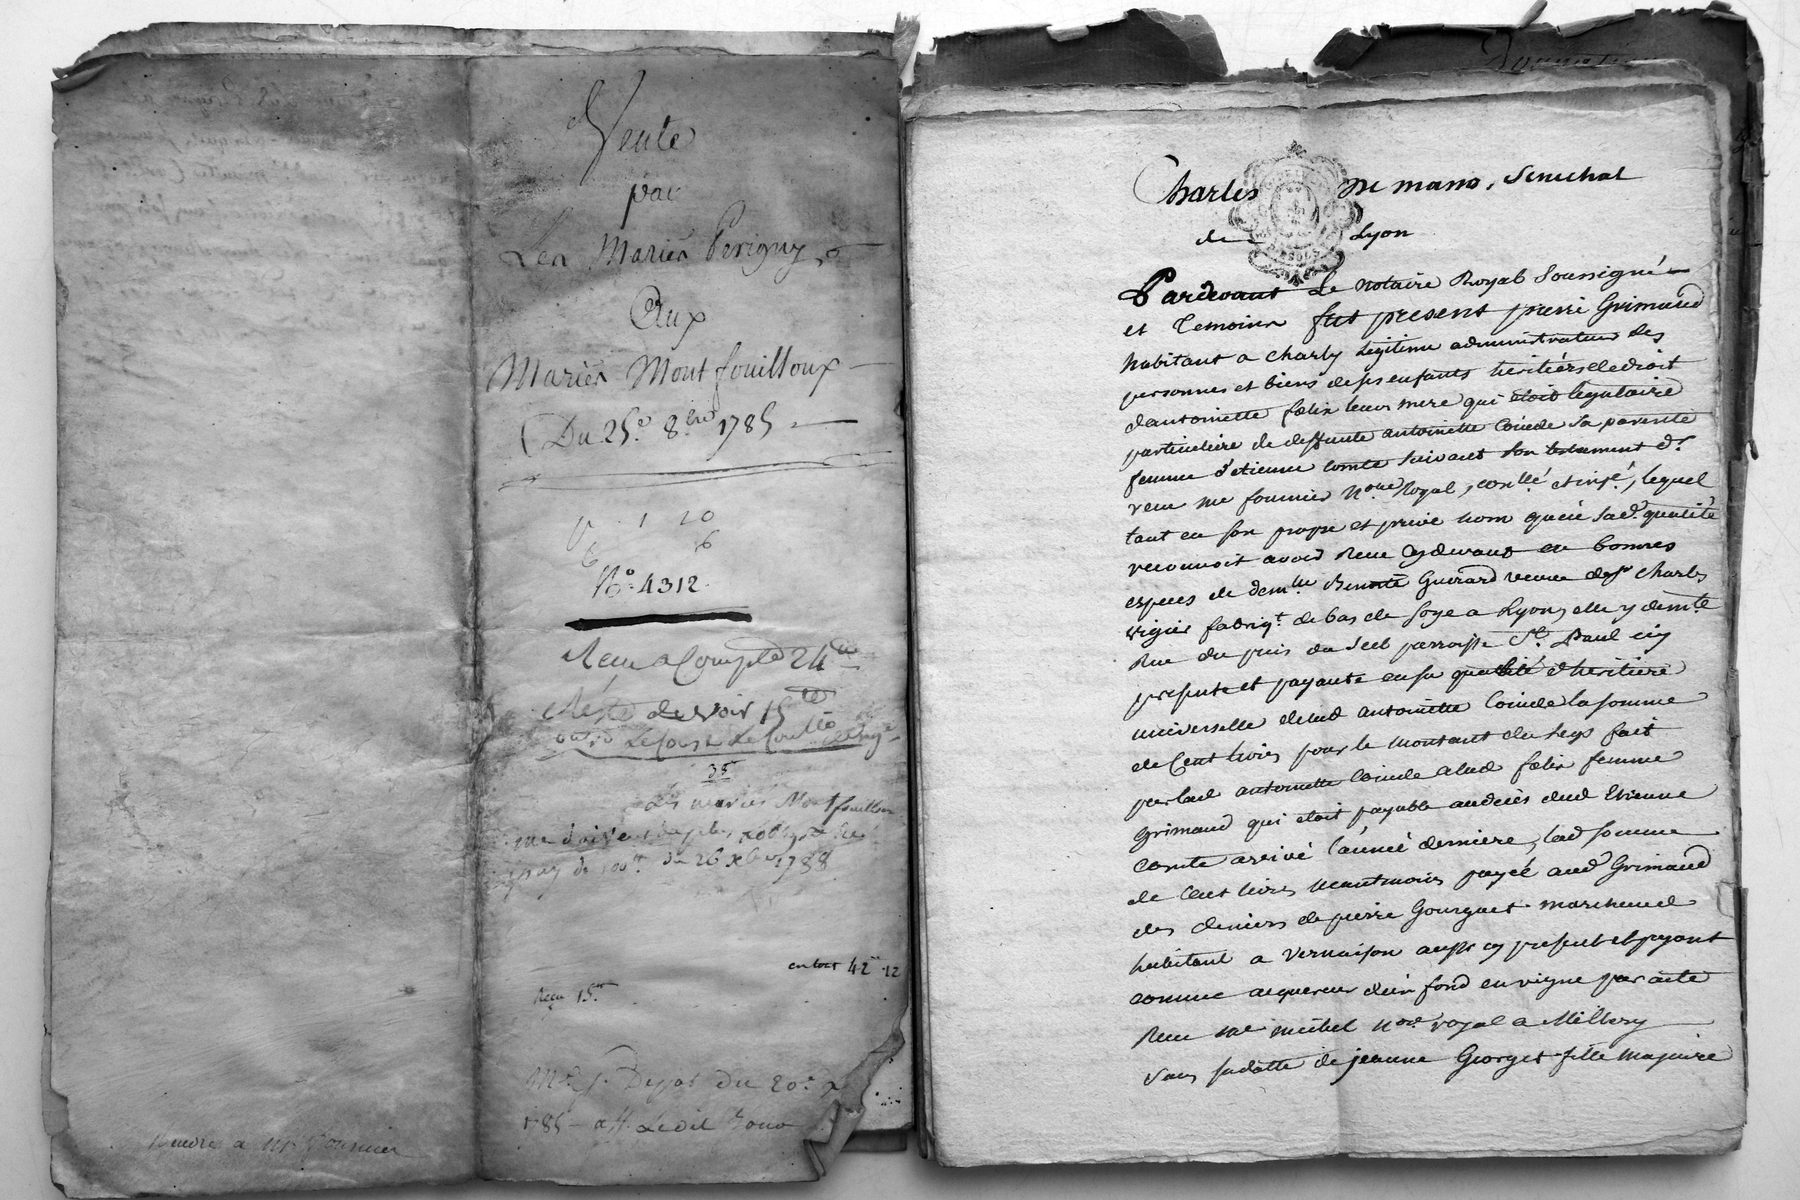 Vente
par
Les Mariés Perigny
Aux
Mariés Montfouilloux
Du 25.e 8.bre 1785
1 20
6 6
N.o 4312.
Receu a Compte 24
Reste devoir 15
35
Les mariés Montfouilloux
me doivent de plus
du 26 Xbre 1788
en tout 42 12
Reçu 15
Depot du 20.e
1785
Rendre a Mr Fournier
Donnation
Charles De mano, Senechal
de Lyon
Pardevant Le notaire Royal Soussigné
et Temoins fut present pierre Grimaud
habitant a charly legitime administrateur des
personnes et biens de ses enfants heritiers de droit
dantoinette felix leur mere qui etoit legataire
particuliere de deffunte antoinette Coinde sa parente
femme d'etienne comte suivant son testament dt
receu me fournier nore Royal, conllé et insé, lequel
tant en son propre et privé nom quen sade qualité
reconnoit avoir Receu cy devant en bonnes
especes de demlle Benoite Guirard veuve de sr charles
vigier fabriqt de bas de soye a Lyon, elle y demte
Rue du puis du Sel parroisse St Paul icy
presente et payante en sa qualité d'heritiere
universelle delad antoinette Coinde la somme
de Cent livres pour le montant du legs fait
par lad antoinette Coinde alad felix femme
Grimaud qui etoit payable audeces dud Etienne
Comte arrivé l'année derniere, lad somme
de Cent livres neantmoins payée aud Grimaud
des deniers de pierre Gourguet marchand
habitant a vernaison aussi cy present et payant
comme acquereur d'un fond en vigne par acte
Receu me michel nore royal a Millery
sous sa datte de jeanne Georget fille majeure